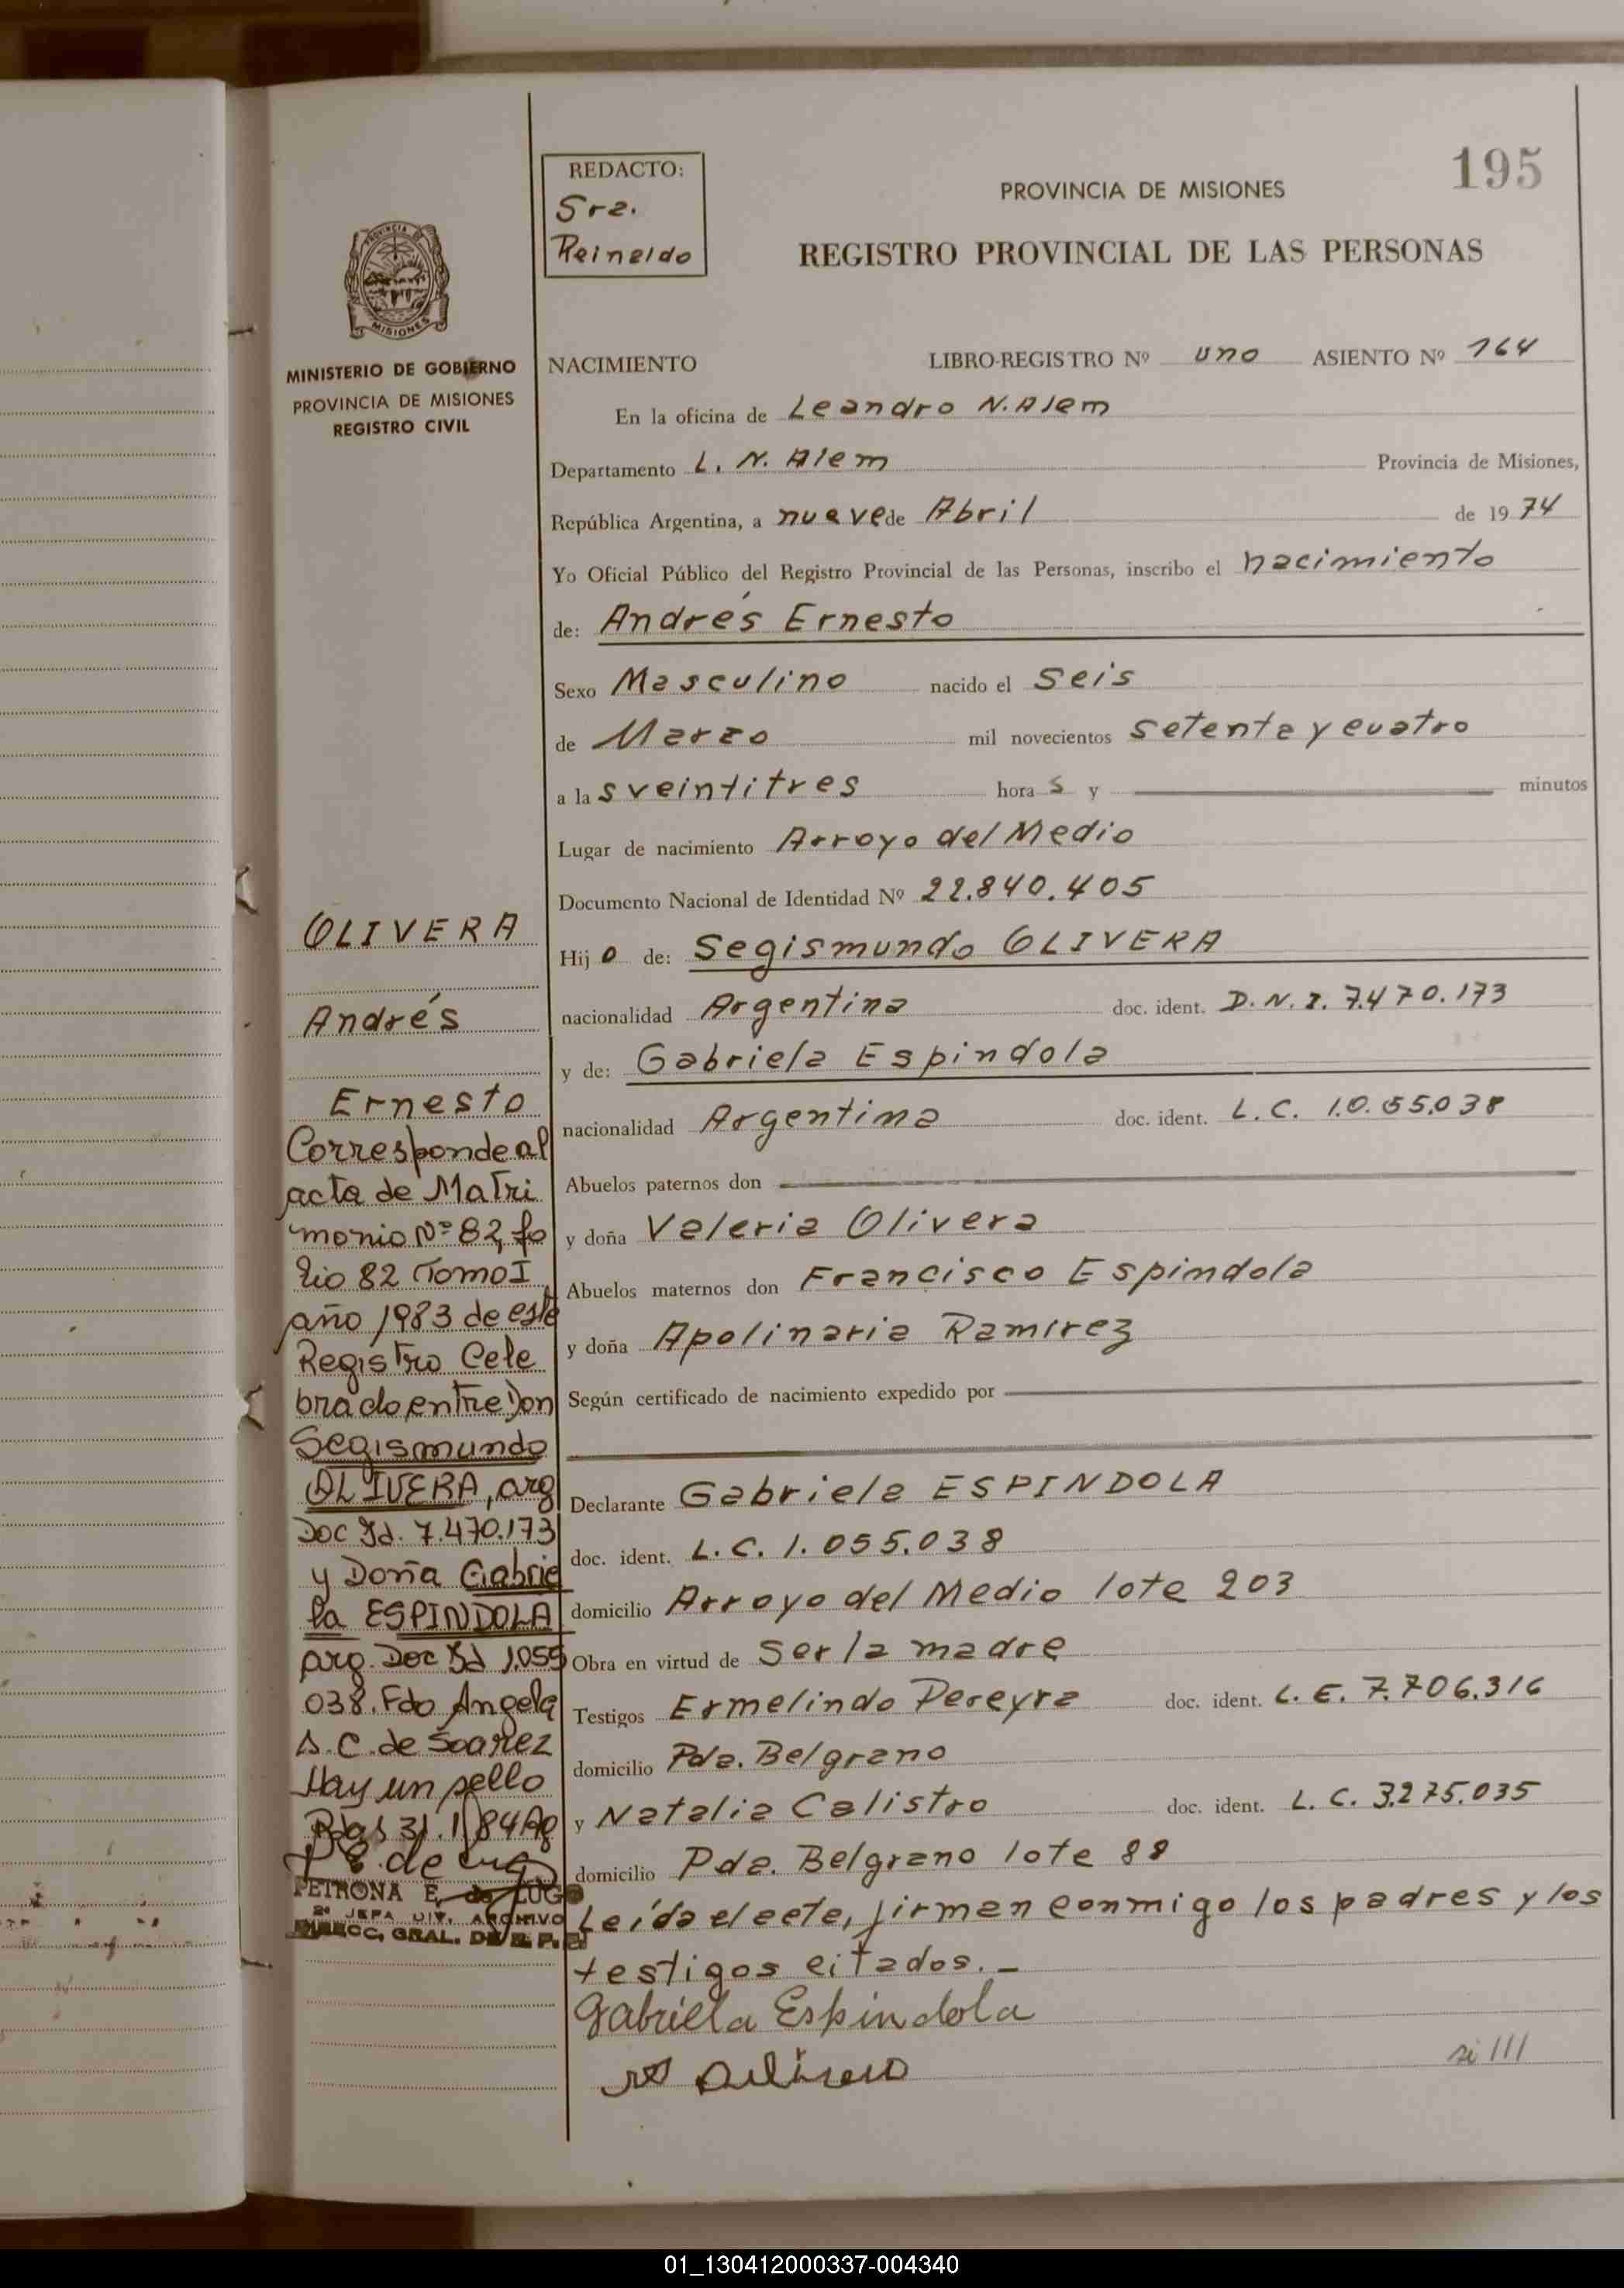 195
REDACTO:
Sra.
Reinaldo
PROVINCIA DE MISIONES
REGISTRO PROVINCIAL DE LAS PERSONAS
PROVINCIA DE
MISIONES
MINISTERIO DE GOBIERNO
PROVINCIA DE MISIONES
REGISTRO CIVIL
NACIMIENTO LIBRO-REGISTRO Nº uno ASIENTO Nº 164
En la oficina de Leandro N. Alem
Departamento L. N. Alem Provincia de Misiones,
República Argentina, a nueve de Abril de 1974
Yo Oficial Público del Registro Provincial de las Personas, inscribo el nacimiento
de: Andrés Ernesto
Sexo Masculino nacido el Seis
de Marzo mil novecientos setenta y cuatro
a las veintitres horas y minutos
Lugar de nacimiento Arroyo del Medio
Documento Nacional de Identidad Nº 22.840.405
Hijo de: Segismundo OLIVERA
nacionalidad Argentina doc. ident. D.N.I. 7.470.173
y de: Gabriela Espindola
nacionalidad Argentina doc. ident. L.C. 1.0.55.038
Abuelos paternos don
y doña Valeria Olivera
Abuelos maternos don Francisco Espindola
y doña Apolinaria Ramirez
Según certificado de nacimiento expedido por
Declarante Gabriela ESPINDOLA
doc. ident. L.C. 1.055.038
domicilio Arroyo del Medio lote 203
Obra en virtud de Ser la madre
Testigos Ermelindo Pereyra doc. ident. L.E. 7.706.316
domicilio Pda. Belgrano
y Natalia Calistro doc. ident. L.C. 3.275.035
domicilio Pda. Belgrano lote 88
Leída el acta, firman conmigo los padres y los
testigos citados. _
Gabriela Espindola
OLIVERA
Andrés
Ernesto
Corresponde al
acta de Matri
monio Nº 82, fo
lio 82 Tomo I
año 1983 de este
Registro Cele
brado entre Don
Segismundo
OLIVERA, arg
Doc Id. 7.470.173
y Doña Gabrie
la ESPINDOLA
arg. Doc Id 1.055
038. Fdo Angela
S. C. de Soarez
Hay un sello
31.1.84
PETRONA E. de LUGO
2º JEFA DIV. ARCHIVO
DIRECC. GRAL. DE R. P. P.
01_130412000337-004340